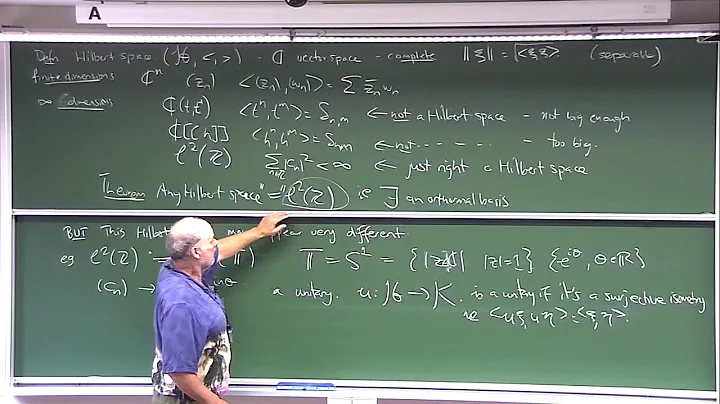 A
Defn Hilbert space (ℋ, < , >) - ℂ vector space - complete ‖ξ‖ = √<ξ,ξ> (separable)
finite dimensions ℂⁿ (zₙ) <(zₙ),(wₙ)> = Σ z̄ₙwₙ
∞ dimensions ℂ(t,t⁻¹) <tⁿ,tᵐ> = δₙ,ₘ ← not a Hilbert space - not big enough
ℂ[[h]] <hⁿ,hᵐ> = δₙₘ ← not - - - - - too big.
ℓ²(ℤ) Σ|cₙ|² < ∞ ← just right a Hilbert space
Theorem Any Hilbert space "=" ℓ²(ℤ) ie ∃ an orthonormal basis
BUT This appear very different
eg ℓ²(ℤ) (𝕋) 𝕋 = S¹ = { |z|=1} {e^{iθ}, θ∈ℝ}
(cₙ) → inθ a unitary. u: ℋ → K. is a unitary if it's a surjective isometry
ie <uξ, uη> = <ξ,η>.